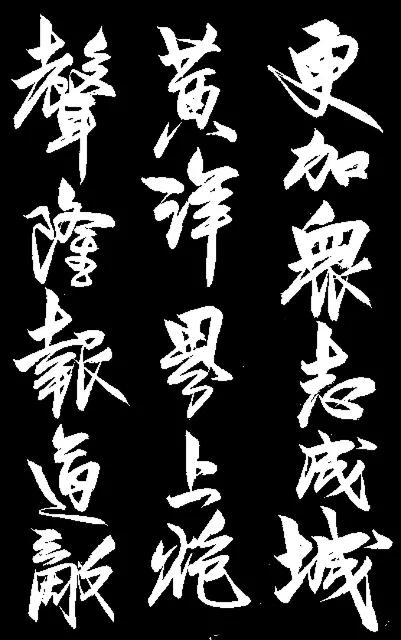 更加眾志成城
黃洋界上炮
聲隆報道敵